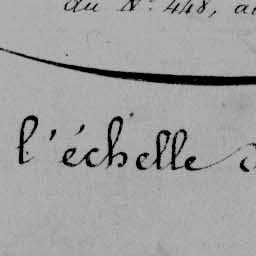 du N° 448, au
l'échelle d